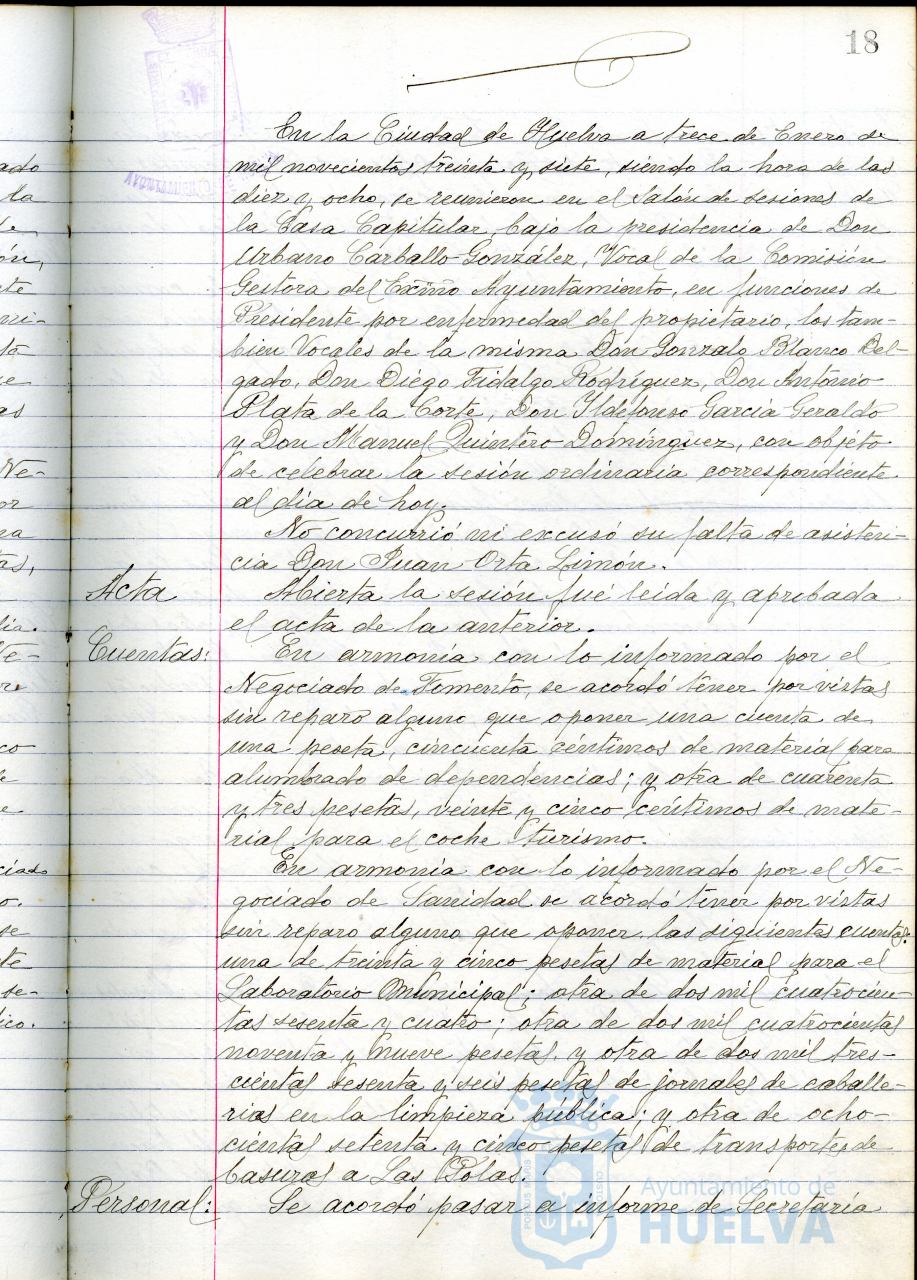 18
En la Ciudad de Huelva a trece de Enero de
mil novecientos treinta y siete, siendo la hora de las
diez y ocho, se reunieron en el Salón de sesiones de
la Casa Capitular, bajo la presidencia de Don
Urbano Carballo González, Vocal de la Comisión
Gestora del Excmo Ayuntamiento, en funciones de
Presidente por enfermedad del propietario, los tam-
bien Vocales de la misma Don Gonzalo Blanco Del-
gado, Don Diégo Fidalgo Rodríguez, Don António
Plata de la Corte, Don Yldefonso García Geraldo
y Don Manuel Quintero Domínguez, con objeto
de celebrar la sesión ordinaria correspondiente
al día de hoy.
No concurrió ni excusó su falta de asisten-
cia Don Juan Orta Limón.
Acta
Abierta la sesión fué leida y aprobada
el acta de la anterior.
Cuentas:
En armonía con lo informado por el
Negociado de Fomento, se acordó tener por vistas
sin reparo alguno que oponer una cuenta de
una peseta, cincuenta céntimos de material para
alumbrado de dependencias; y otra de cuarenta
y tres pesetas, veinte y cinco céntimos de mate-
rial para el coche turismo.
En armonía con lo informado por el Ne-
gociado de Sanidad se acordó tener por vistas
sin reparo alguno que oponer, las siguientes cuentas:
una de treinta y cinco pesetas de material para el
Laboratorio Municipal; otra de dos mil cuatrocien-
tas sesenta y cuatro; otra de dos mil cuatrocientas
noventa y nueve pesetas, y otra de dos mil tres-
cientas sesenta y seis pesetas de jornales de caballe-
rias en la limpieza pública; y otra de ocho-
cientas setenta y cinco pesetas de transportes de
basuras a Las Polas.
Personal:
Se acordó pasar a informe de Secretaría
Ayuntamiento de
HUELVA